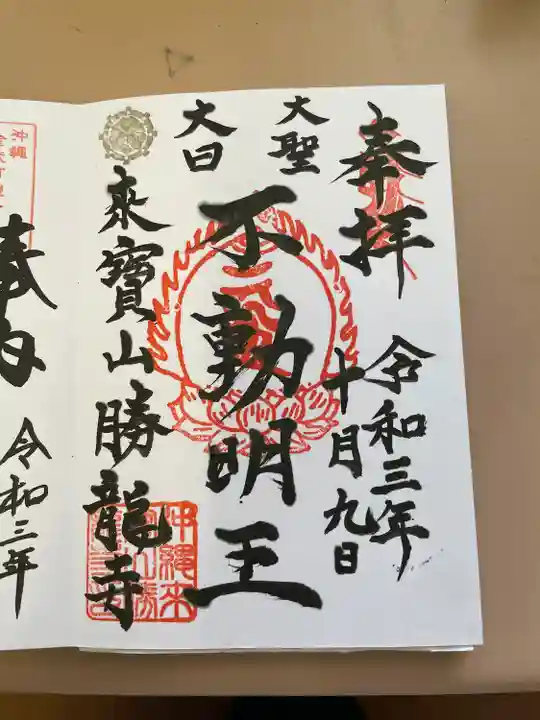 奉拝
令和三年
十月九日
大聖
大日
不動明王
來寳山勝龍寺
沖縄
令和三年